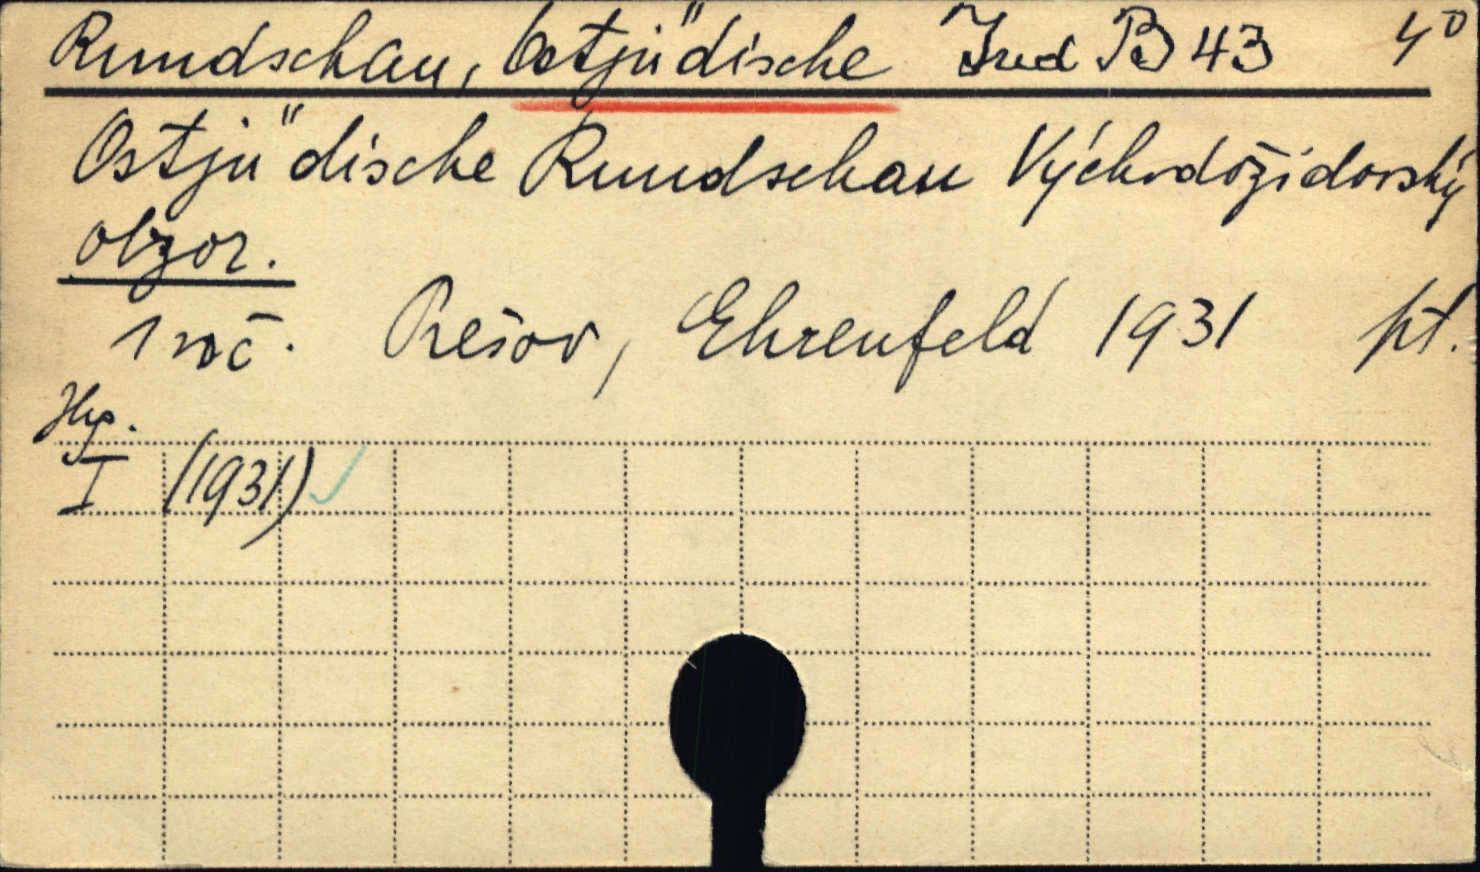 Rundschau, Ostjüdische Jud B 43 4°
Ostjüdische Rundschau Východožidovský
obzor.
1 roč. Prešov, Ehrenfeld 1931 pt.
Jhg.
I (1931)